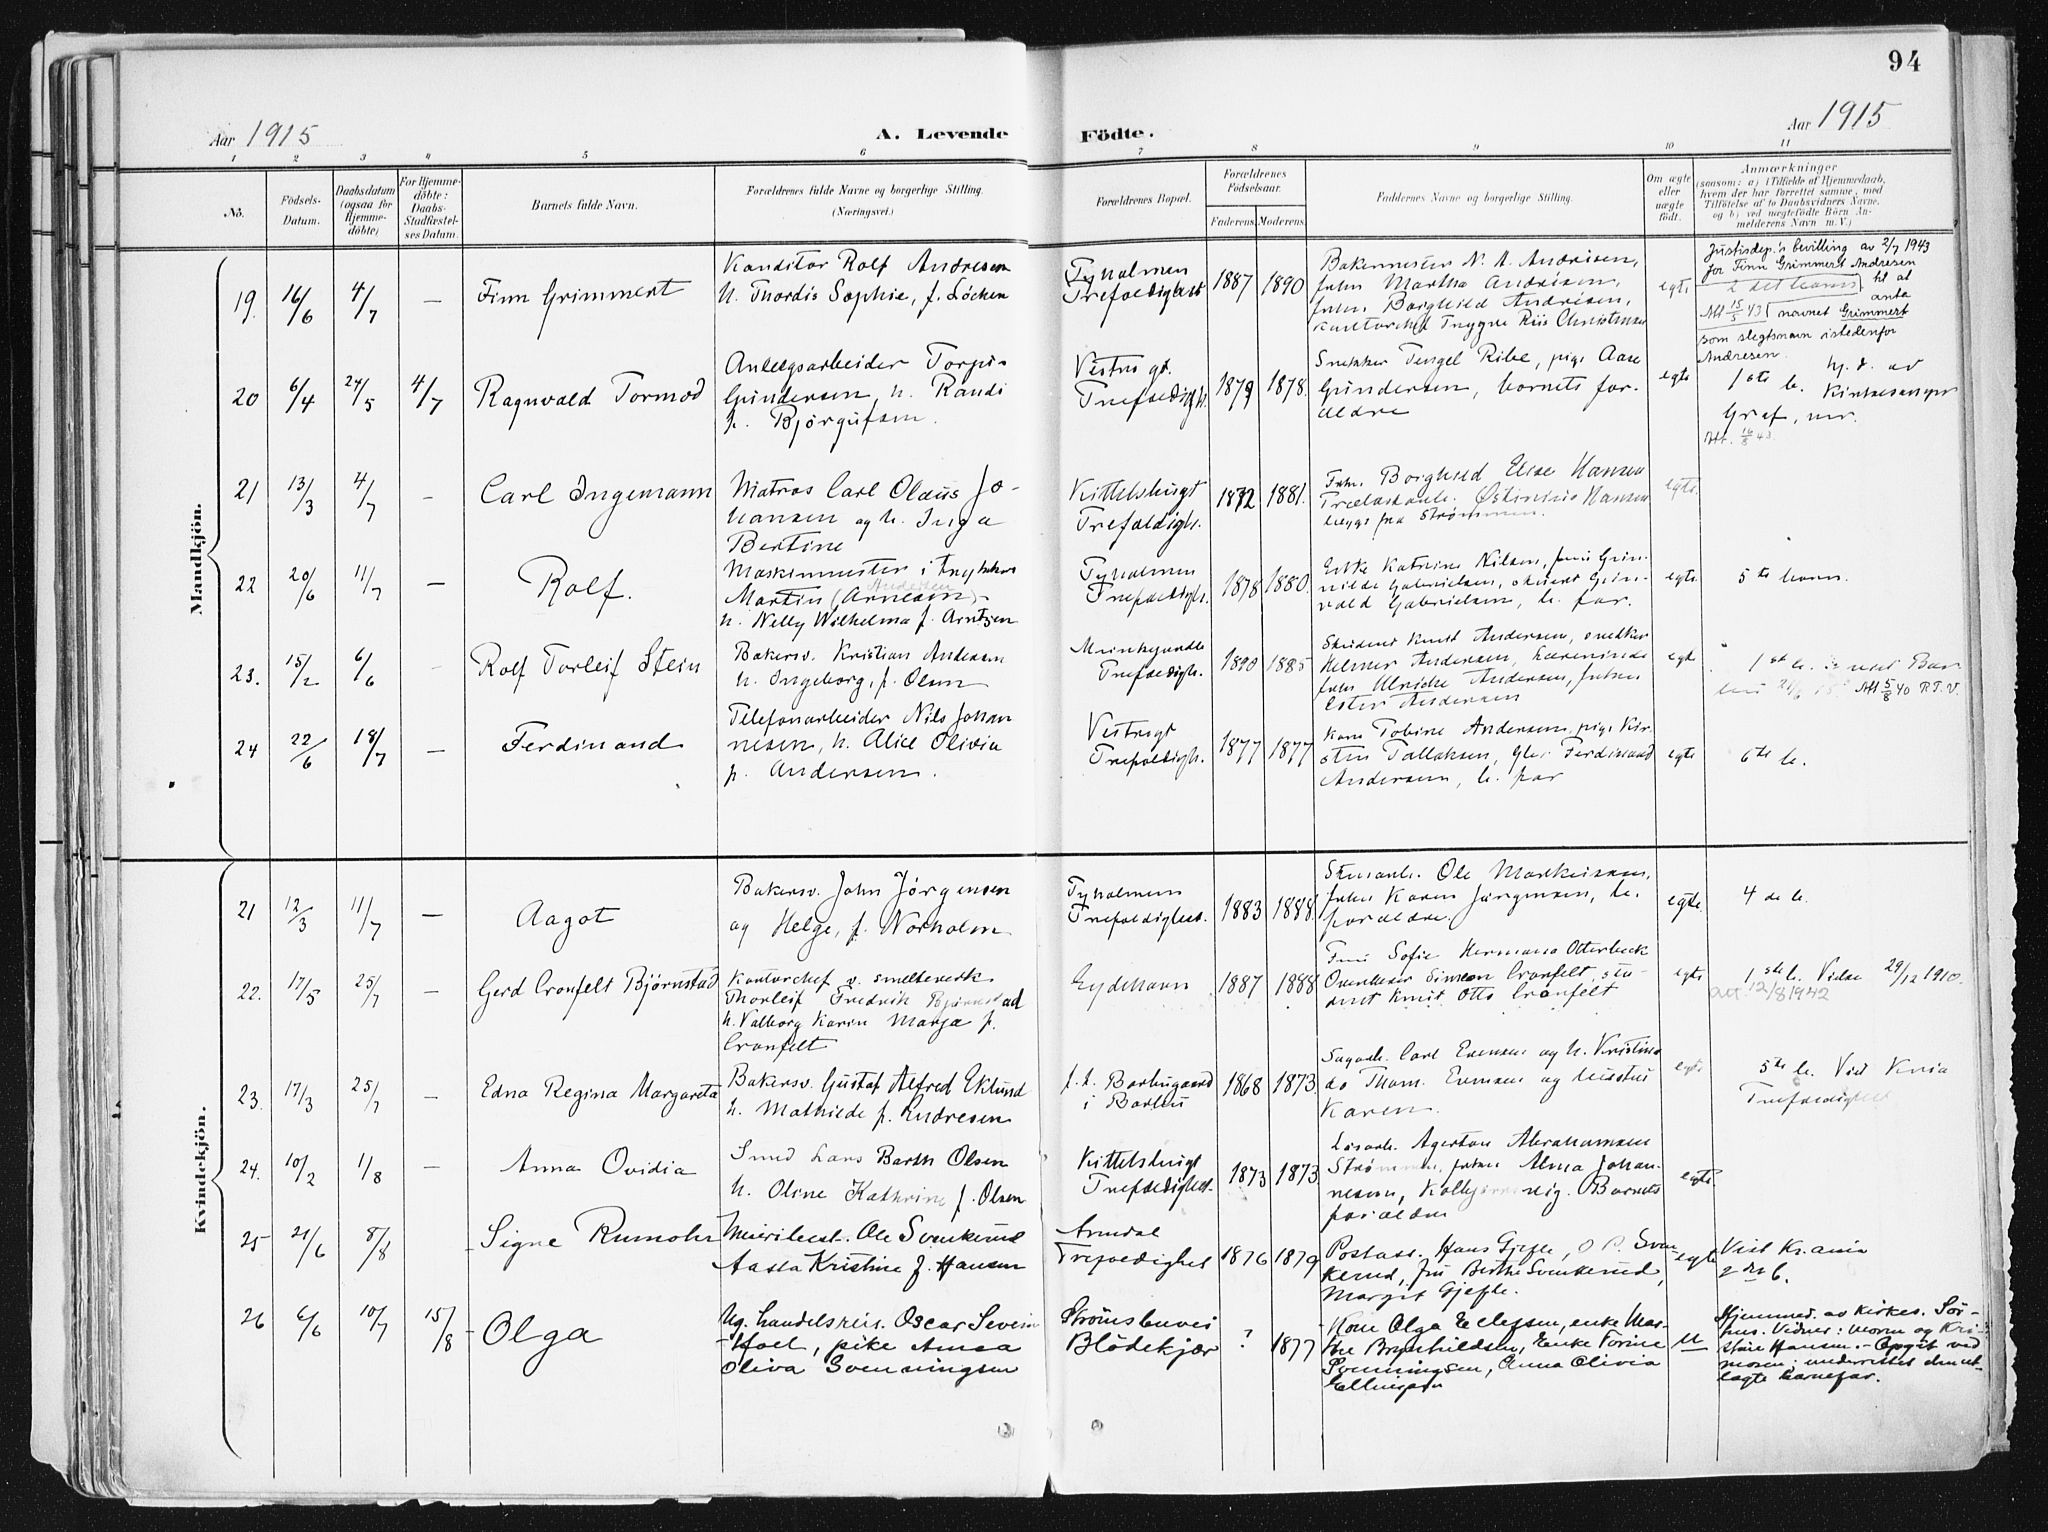 94
Aar 1915
A. Levende Födte.
Aar 1915
1 2 3 4 5 6 7 8 9 10 11
No.
Födsels-Datum.
Daabsdatum (ogsaa for Hjemmedöbte)
For Hjemmedöbte: Daabs-Stadfæstelses Datum.
Barnets fulde Navn.
Forældrenes fulde Navne og borgerlige Stilling. (Næringsvei.)
Forældrenes Bopæl.
Forældrenes Födselsaar.
Faderens. Moderens.
Faddernes Navne og borgerlige Stilling.
Om ægte eller uægte födt.
Anmærkninger
(saasom: a) i Tilfælde af Hjemmedaab, hvem der har forrettet samme, med Tilföielse af to Daabsvidners Navne, og b) ved uægtefödte Börn Anmelderens Navn m. V.)
Mandkjön.
19. 16/6 4/7 — Finn Grimmert
Konditor Rolf Andresen
h. Thordis Sophie, f. Löcken
Tyholmen
Trefoldighet
1887 1890
Bakermester N. A. Andresen,
frkn Martha Andresen,
frkn. Borghild Andresen,
kontorchef Trygve Riis Christensen
egte
Justisdep.'s bevilling av 2/7 1943
for Finn Grimmert Andresen
til at
2det barn
anta
Att 15/5 43 navnet Grimmert
som slegtsnavn istedenfor
Andresen.
20 6/4 24/5 4/7 Ragnvald Tormod
Anlægsarbeider Torgus
Gundersen, h. Randi
f. Björgufsen.
Vestregt.
Trefoldigh.
1879 1878.
Snekker Tengel Ribe, pige Aase
Gundersen, barnets for-
ældre
egte
1ste b. hj. d. av
Kirkesanger
Graf, nr.
Att. 16/8 43.
21 13/3 4/7 — Carl Ingemann
Matros Carl Olaus Jo-
hansen og h. Inga
Bertine
Kittelsbugt
Trefoldigh.
1872 1881.
Frk. Borghild Elise Hansen
Hansen
begge fra Strömmen.
egte.
22 20/6 11/7 — Rolf.
Maskinmester i
Martin (Arnesen)
Andersen
h. Nelly Wilhelma f. Arntzen
Tyholmen
Trefoldigh.
1878 1880.
Enke Katrine Nilsen, frue Gun-
nilde Gabrielsen, Grun-
vald Gabrielsen, b. far.
egte
5te barn.
23. 15/2 6/6 — Rolf Torleif Stein
Bakersv. Kristian Andersen
h. Ingeborg, f. Olsen
Trefoldigh.
1890 1885
Student Knut Andersen, snedker
Helmer Andersen, Lærerinde
frkn Ulrikke Andersen, frkn
Ester Andersen
egte
1ste b.
Att 5/8 40 R.T.V.
24 22/6 18/7 — Ferdinand
Telefonarbeider Nils Johan
nesen, h. Alice Olivia
f. Andersen.
Vestregt
Trefoldigh.
1877 1877
Kone Tobine Andersen, pige Kir-
stin Tallaksen, Ferdinand
Andersen, b. far
egte
6te b.
Kvindekjön.
21 12/3 11/7 — Aagot
Bakersv. John Jörgensen
og Helge, f. Norholm
Tyholmen
Trefoldighet.
1883 1888.
Stenarb. Ole Markussen,
frkn Karen Jörgensen, b.
forældre.
egte.
4de b.
22. 17/5 25/7 — Gerd Cronfelt Björnstad
Kontorchef v. smelteverk
Thorleif Fredrik Björnstad
h. Valborg Karin Marja f.
Cronfelt
Eydehavn
1887 1888
Frue Sofie Hermana Otterbeck
Simeon Cronfelt, stu-
dent Knut Otto Cronfelt
egte
1ste b. Vielse 29/12 1910.
Att. 12/8 1942
23. 17/3 25/7 — Edna Regina Margareta
Bakersv. Gustaf Alfred Eklund
h. Mathilde f. Andresen
f. t. Barbugaard
i Barbu
1868 1873.
Sagarb. Carl Evensen og h. Kristine
do Thom. Evensen og hustru
Karen.
egte
5te b. Vied Kria
Trefoldighet
24. 10/2 1/8 — Anna Ovidia
Smed Lars Barth Olsen
h. Oline Kathrine f. Olsen
Kittelsbugt
Trefoldighet.
1873 1873
Lösarb. Agerton Abrahamsen
Strömmen, frkn Alma Johan-
nesen, Kolbjörnsvig. Barnets
forældre
egte.
25 21/6 8/8 - Signe Rumohr
Meieribest. Ole Svenkerud
Aasta Kristine f. Hansen
Arendal
Trefoldighet
1876 1879
Postass. Hans Gjefle, O. P. Sven
kerud, fru Berthe Svenkerud,
Margit Gjefle.
egte
Viet Kr.ania
2det b.
26 6/6 10/7 15/8 - Olga
Ug. handelsreis. Oscar Severin
Hoel, pike Anna
Oliva Svenningsen
Strömsbuvei
Blödekjær
? 1877
Kone Olga Ellefsen, enke Mar-
the Brynhildsen, Enke Torine
Svenningsen, Anna Olivia
Ellingsen
U
Hjemmed. av kirkes. Sör-
hus. Vidner: moren og Kri-
stine Hansen. - Opgit ved
moren; underrettet den ut-
lagte barnefar.